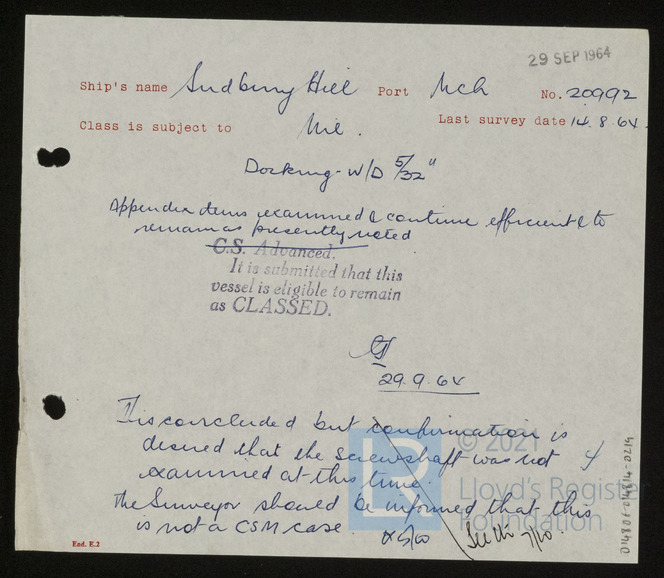 29 SEP 1964
Ship's name Sudbury Hill Port Mch No. 20992
Class is subject to Nil. Last survey date 14.8.64.
Docking - W/D 5/32"
Appendix items examined & continue efficient & to
remain as presently noted
C.S. Advanced.
It is submitted that this
vessel is eligible to remain
as CLASSED.
29.9.64
It is concluded but confirmation is
desired that the screwshaft was not
examined at this time.
The Surveyor should be informed that this
is not a CSM case
7/10.
End. E.2
© 2021
Lloyd's Register
Foundation
LR